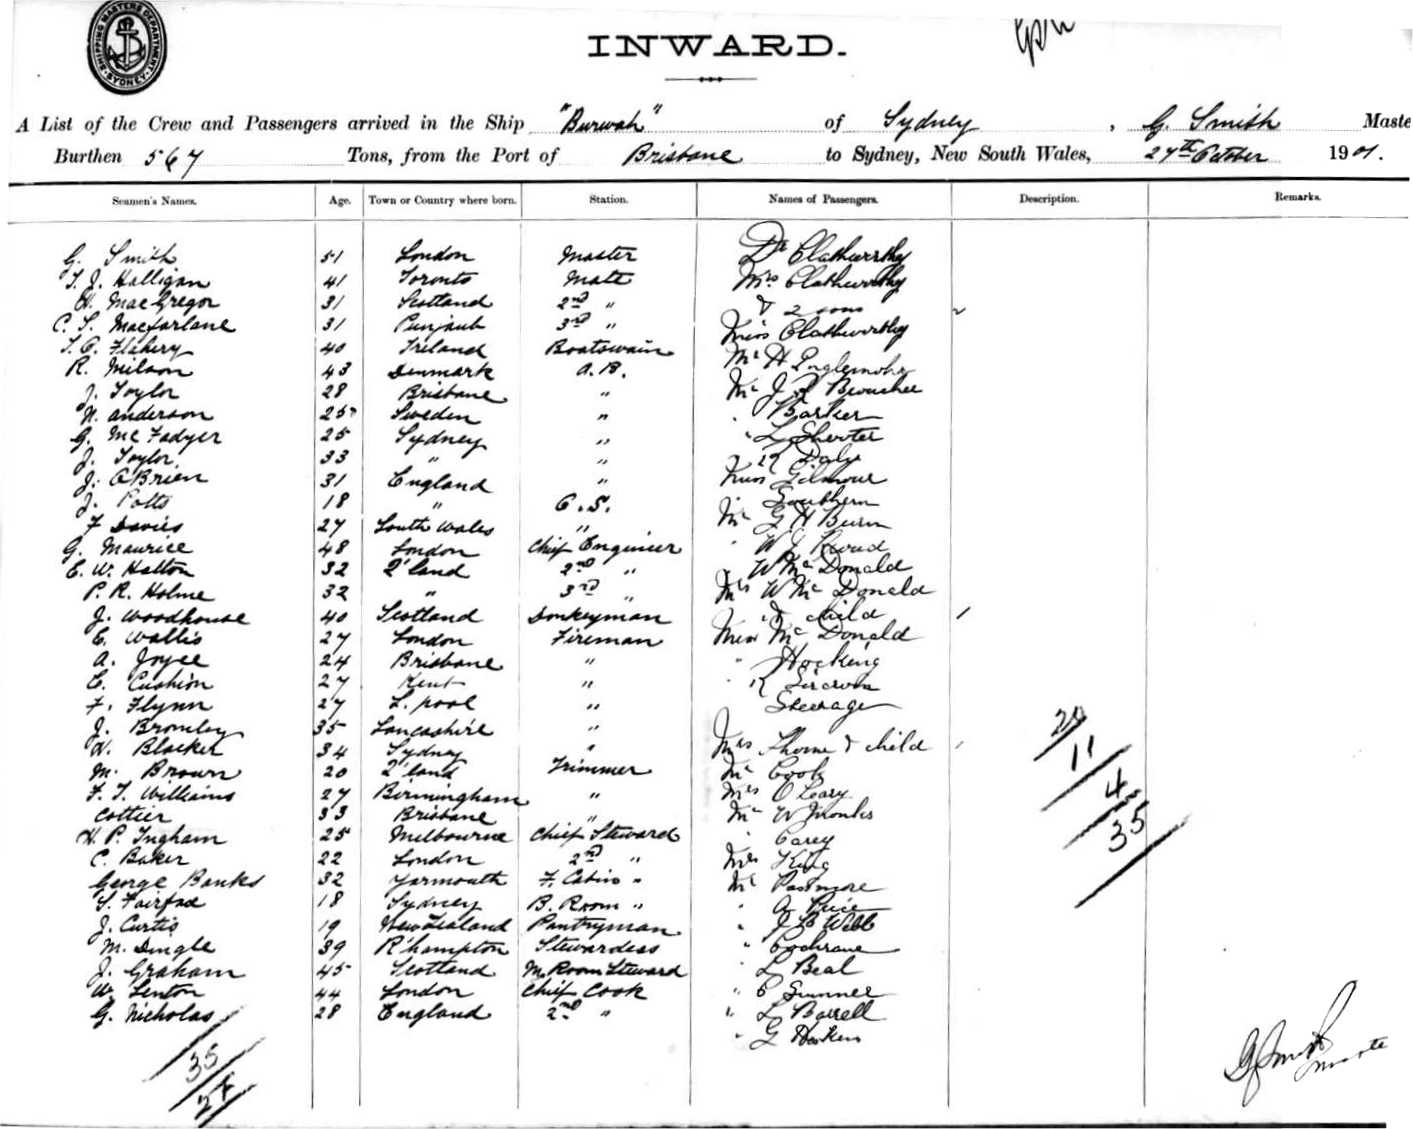 SHIPPING MASTERS DEPARTMENT · SYDNEY ·
INWARD.
A List of the Crew and Passengers arrived in the Ship "Burwah" of Sydney, G. Smith Maste
Burthen 567 Tons, from the Port of Brisbane to Sydney, New South Wales, 27th October 1901.
Seamen's Names. Age. Town or Country where born. Station. Names of Passengers. Description. Remarks.
G. Smith 51 London Master Dr Clatworthy
T. J. Halligan 41 Toronto Mate Mrs Clatworthy
H. MacGregor 31 Scotland 2nd " & 2 sons 2
C. S. Macfarlane 31 Punjaub 3rd " Miss Clatworthy
T. C. Flahery 40 Ireland Boatswain Mr H
R. Milson 43 Denmark A.B. Mr J
J. Taylor 28 Brisbane " " Barker
N. Anderson 25 Sweden " " L Shooter
G. McFadyer 25 Sydney " Daly
J. Taylor 33 " " Miss Gilmour
J. O'Brien 31 England " " Southern
J. Potts 18 " O.S. Mr G H Burn
F Davies 27 South Wales " " W J
G. Maurice 48 London Chief Engineer " W McDonald
E. W. Hatton 32 Q'land 2nd " Mrs W McDonald
P. R. Holme 32 " 3rd " & child 1
J. Woodhouse 40 Scotland Donkeyman Miss McDonald
E. Wallis 27 London Fireman " Hocking
A. Joyce 24 Brisbane " " K
C. Cushion 27 Kent " Steerage
F. Flynn 27 L.pool "
J. Bromley 35 Lancashire " Mrs Thorne & child 1
H. Blacker 34 Sydney " Mr Cook
M. Brown 20 Q'land Trimmer Mrs O'Leary
F. T. Williams 27 Birmingham " Mr W Monks
Cottier 33 Brisbane " " Carey
H. P. Ingham 25 Melbourne Chief Steward Mrs King
C. Baker 22 London 2nd " Mr Passmore
George Banks 32 Yarmouth F. Cabin " " A Price
S. Fairfax 18 Sydney B. Room " " J Webb
J. Curtis 19 New Zealand Pantryman " Cochrane
M. Dingle 39 R'hampton Stewardess " L Beal
J. Graham 45 Scotland M. Room Steward "
W. Lenton 44 London Chief Cook " L Barrell
G. Nicholas 28 England 2nd " " G
35
11
4
35
G Smith